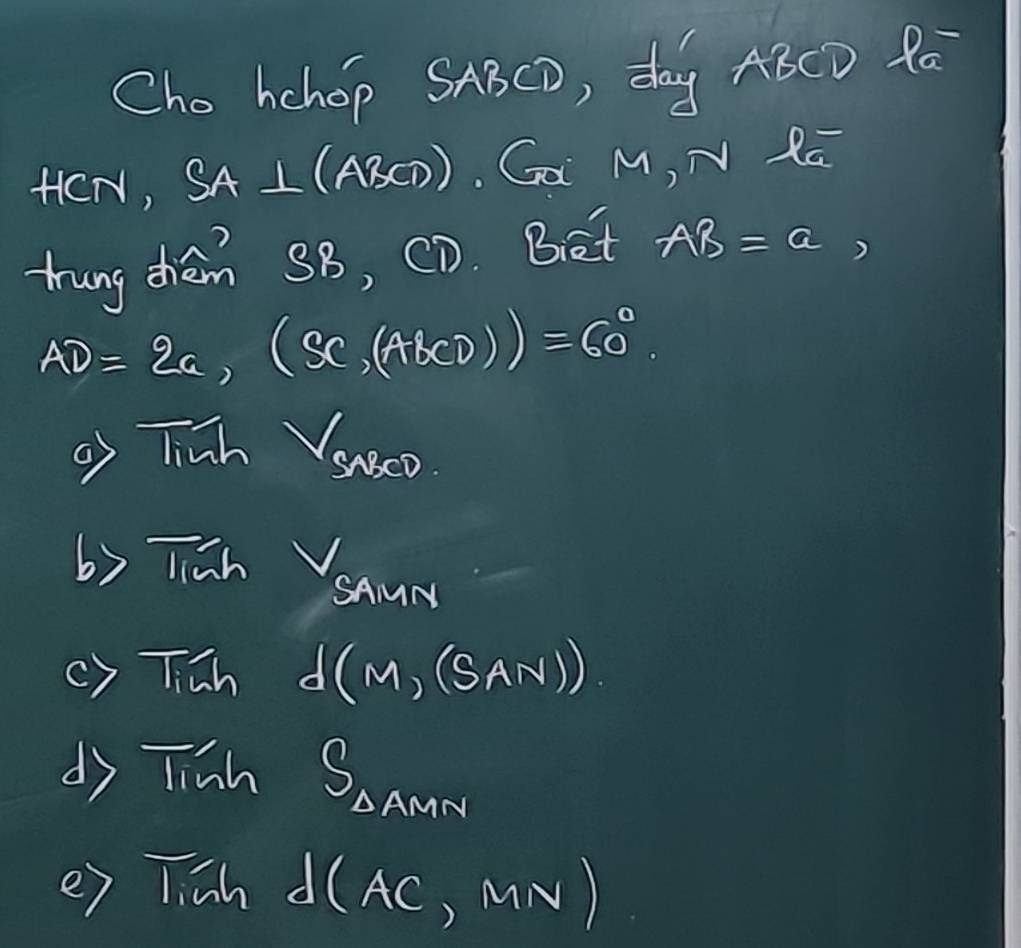 Cho hchóp SABCD, đáy ABCD là
HCN, SA ⊥ (ABCD). Gọi M, N là
trung điểm SB, CD. Biết AB = a,
AD = 2a, (SC,(ABCD)) = 60°.
a) Tính V_SABCD.
b) Tính V_SAMN
c) Tính d(M, (SAN)).
d) Tính S_ΔAMN
e) Tính d(AC, MN)